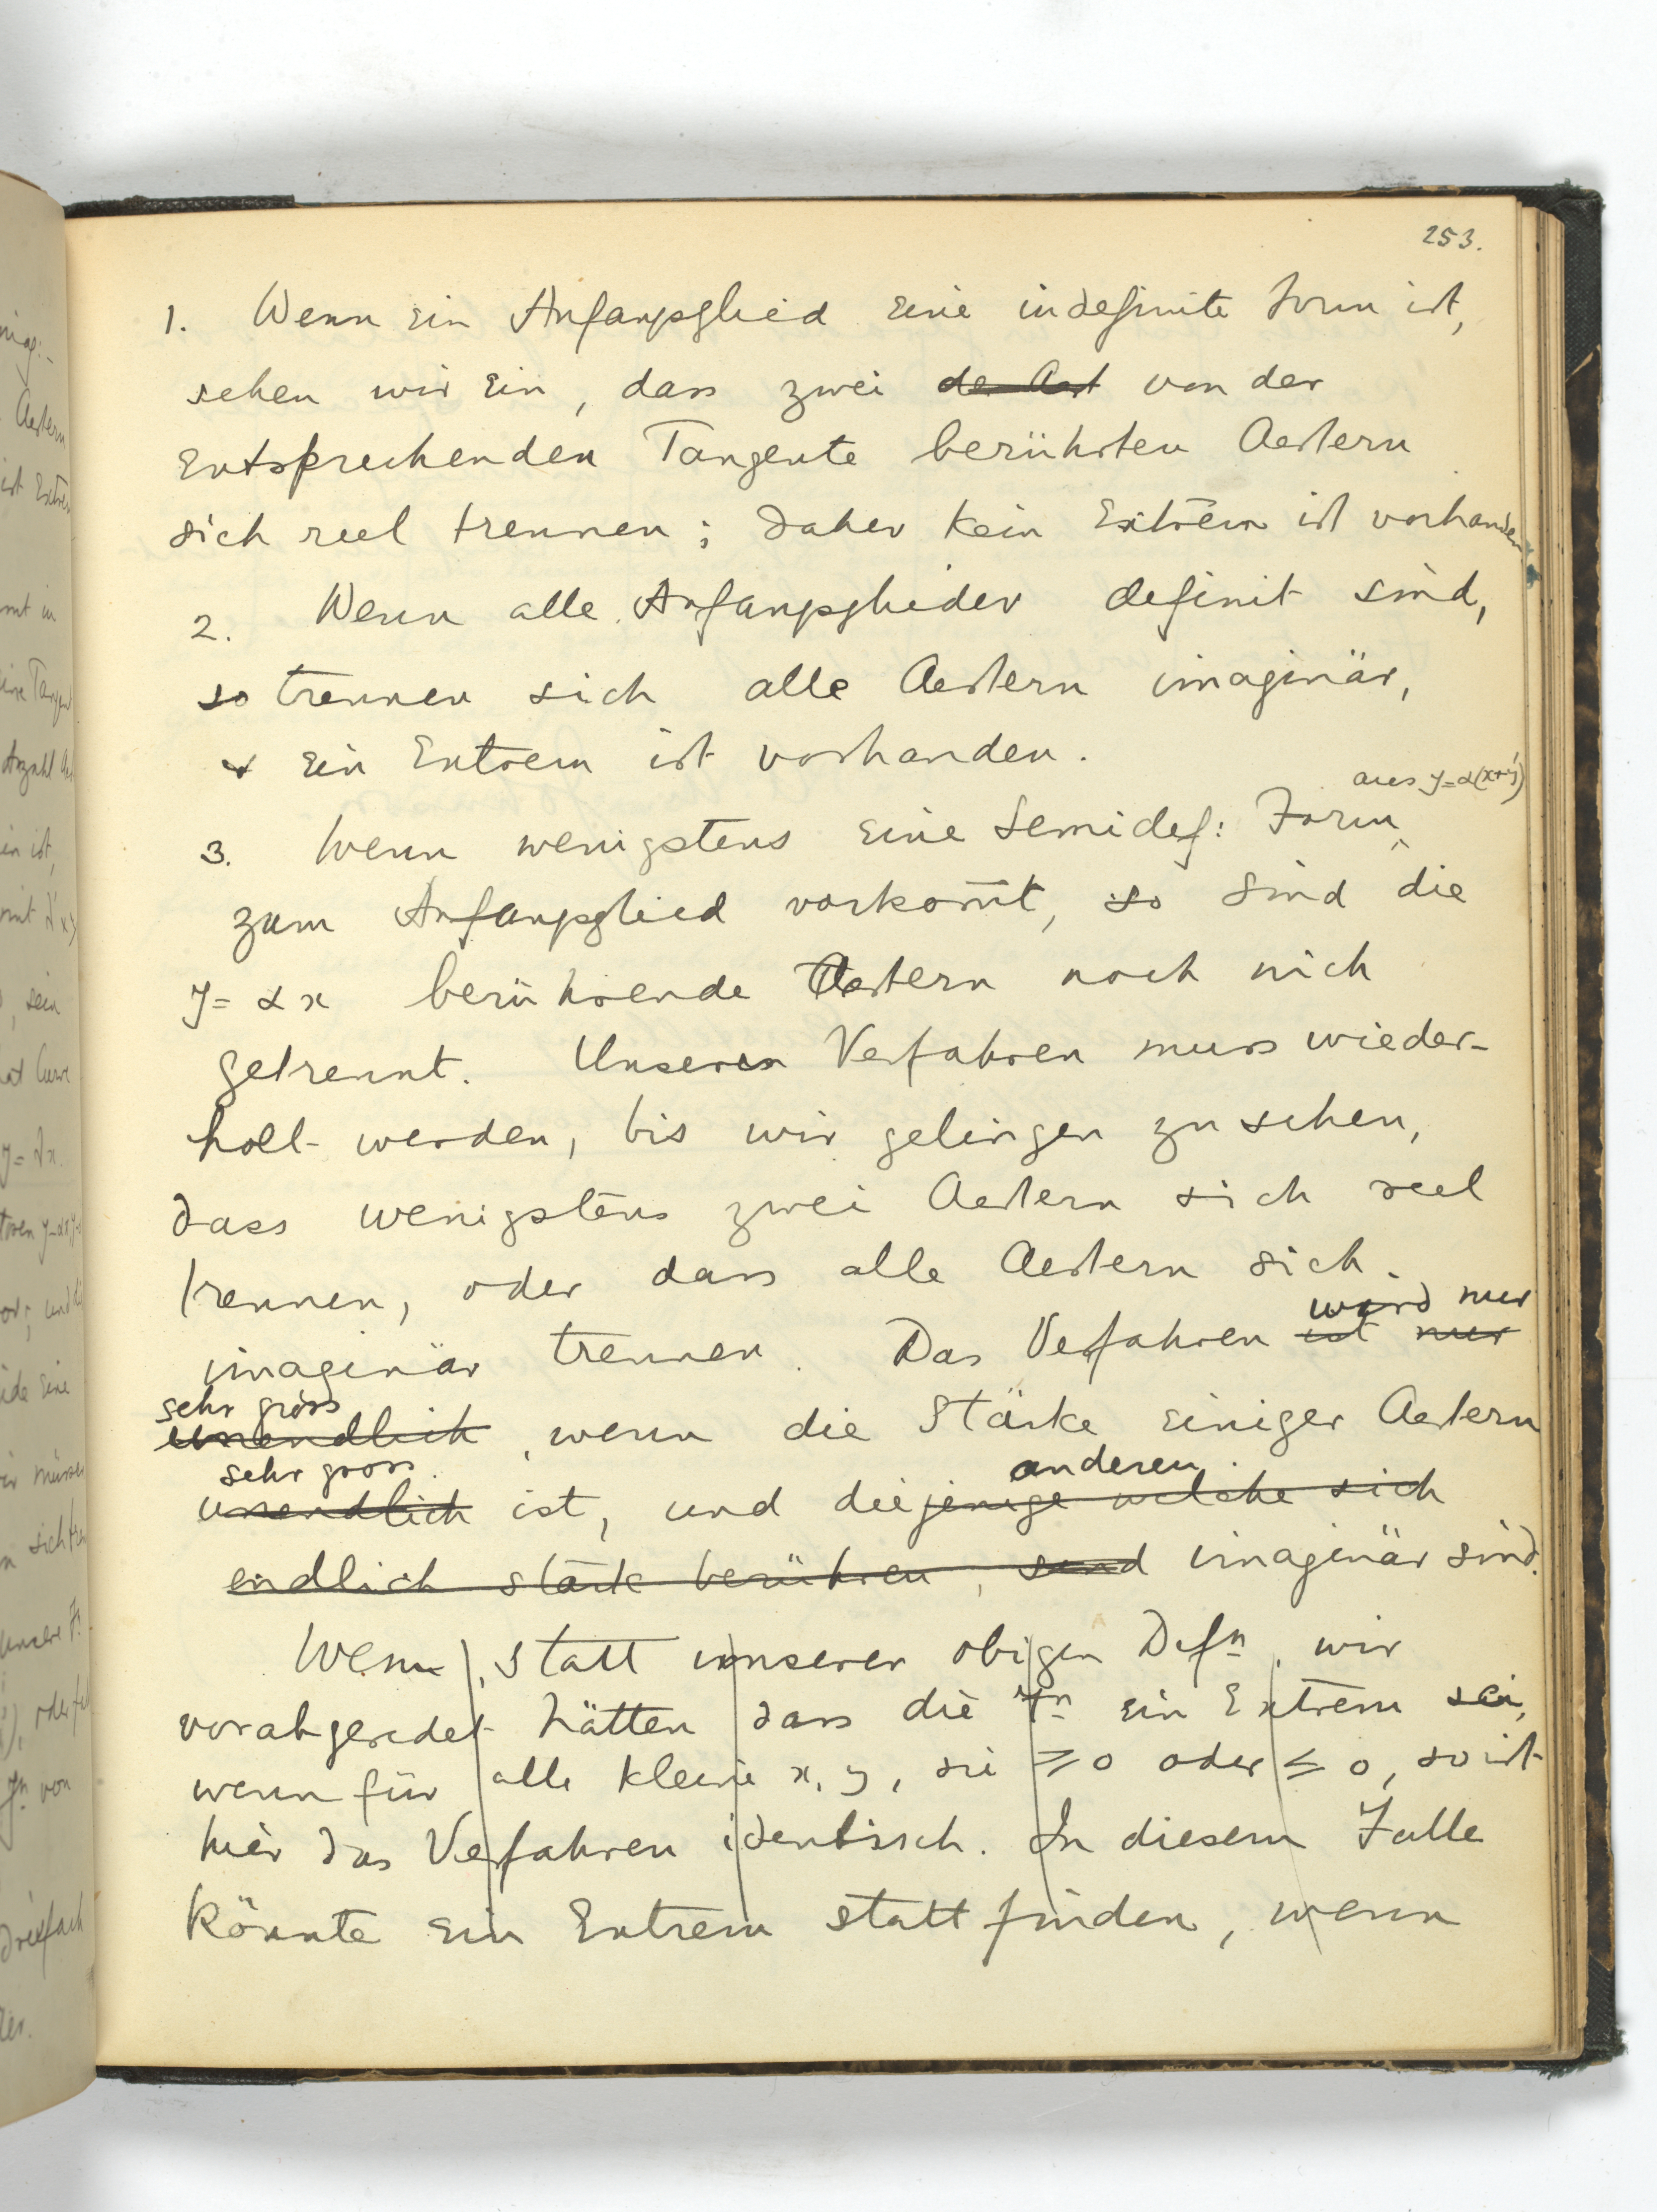 253.
1. Wenn ein Anfangsglied eine indefinite Form ist,
sehen wir ein, dass zwei der Aest von der
entsprechenden Tangente berührten Aestern
sich reel trennen; daher kein Extrem ist vorhanden
2. Wenn alle Anfangsglieder definit sind,
so trennen sich alle Aestern imaginär,
& ein Extrem ist vorhanden.
aus y=α(x+y')
3. Wenn wenigstens eine Semidef: Form
zum Anfangsglied vorkom̅t, so sind die
y = αx berührende Aestern noch nich
getrennt. Unseren Verfahren muss wieder-
holt werden, bis wir gelingen zu sehen,
dass wenigstens zwei Aestern sich reel
trennen, oder dass alle Aestern sich
wird nur
imaginär trennen. Das Verfahren ist nur
sehr gross
unendlich, wenn die Stärke einiger Aestern
sehr gross anderen
unendlich ist, und diejenige welche sich
endlich stark berühren, sind imaginär sind.
Wenn, statt unserer obigen Defn, wir
vorabgeredet hätten dass die Fn ein Extrem sei,
wenn für alle kleine x, y, sie ≥ 0 oder ≤ 0, so ist
hier das Verfahren identisch. In diesem Falle
könnte ein Extrem stattfinden, wenn